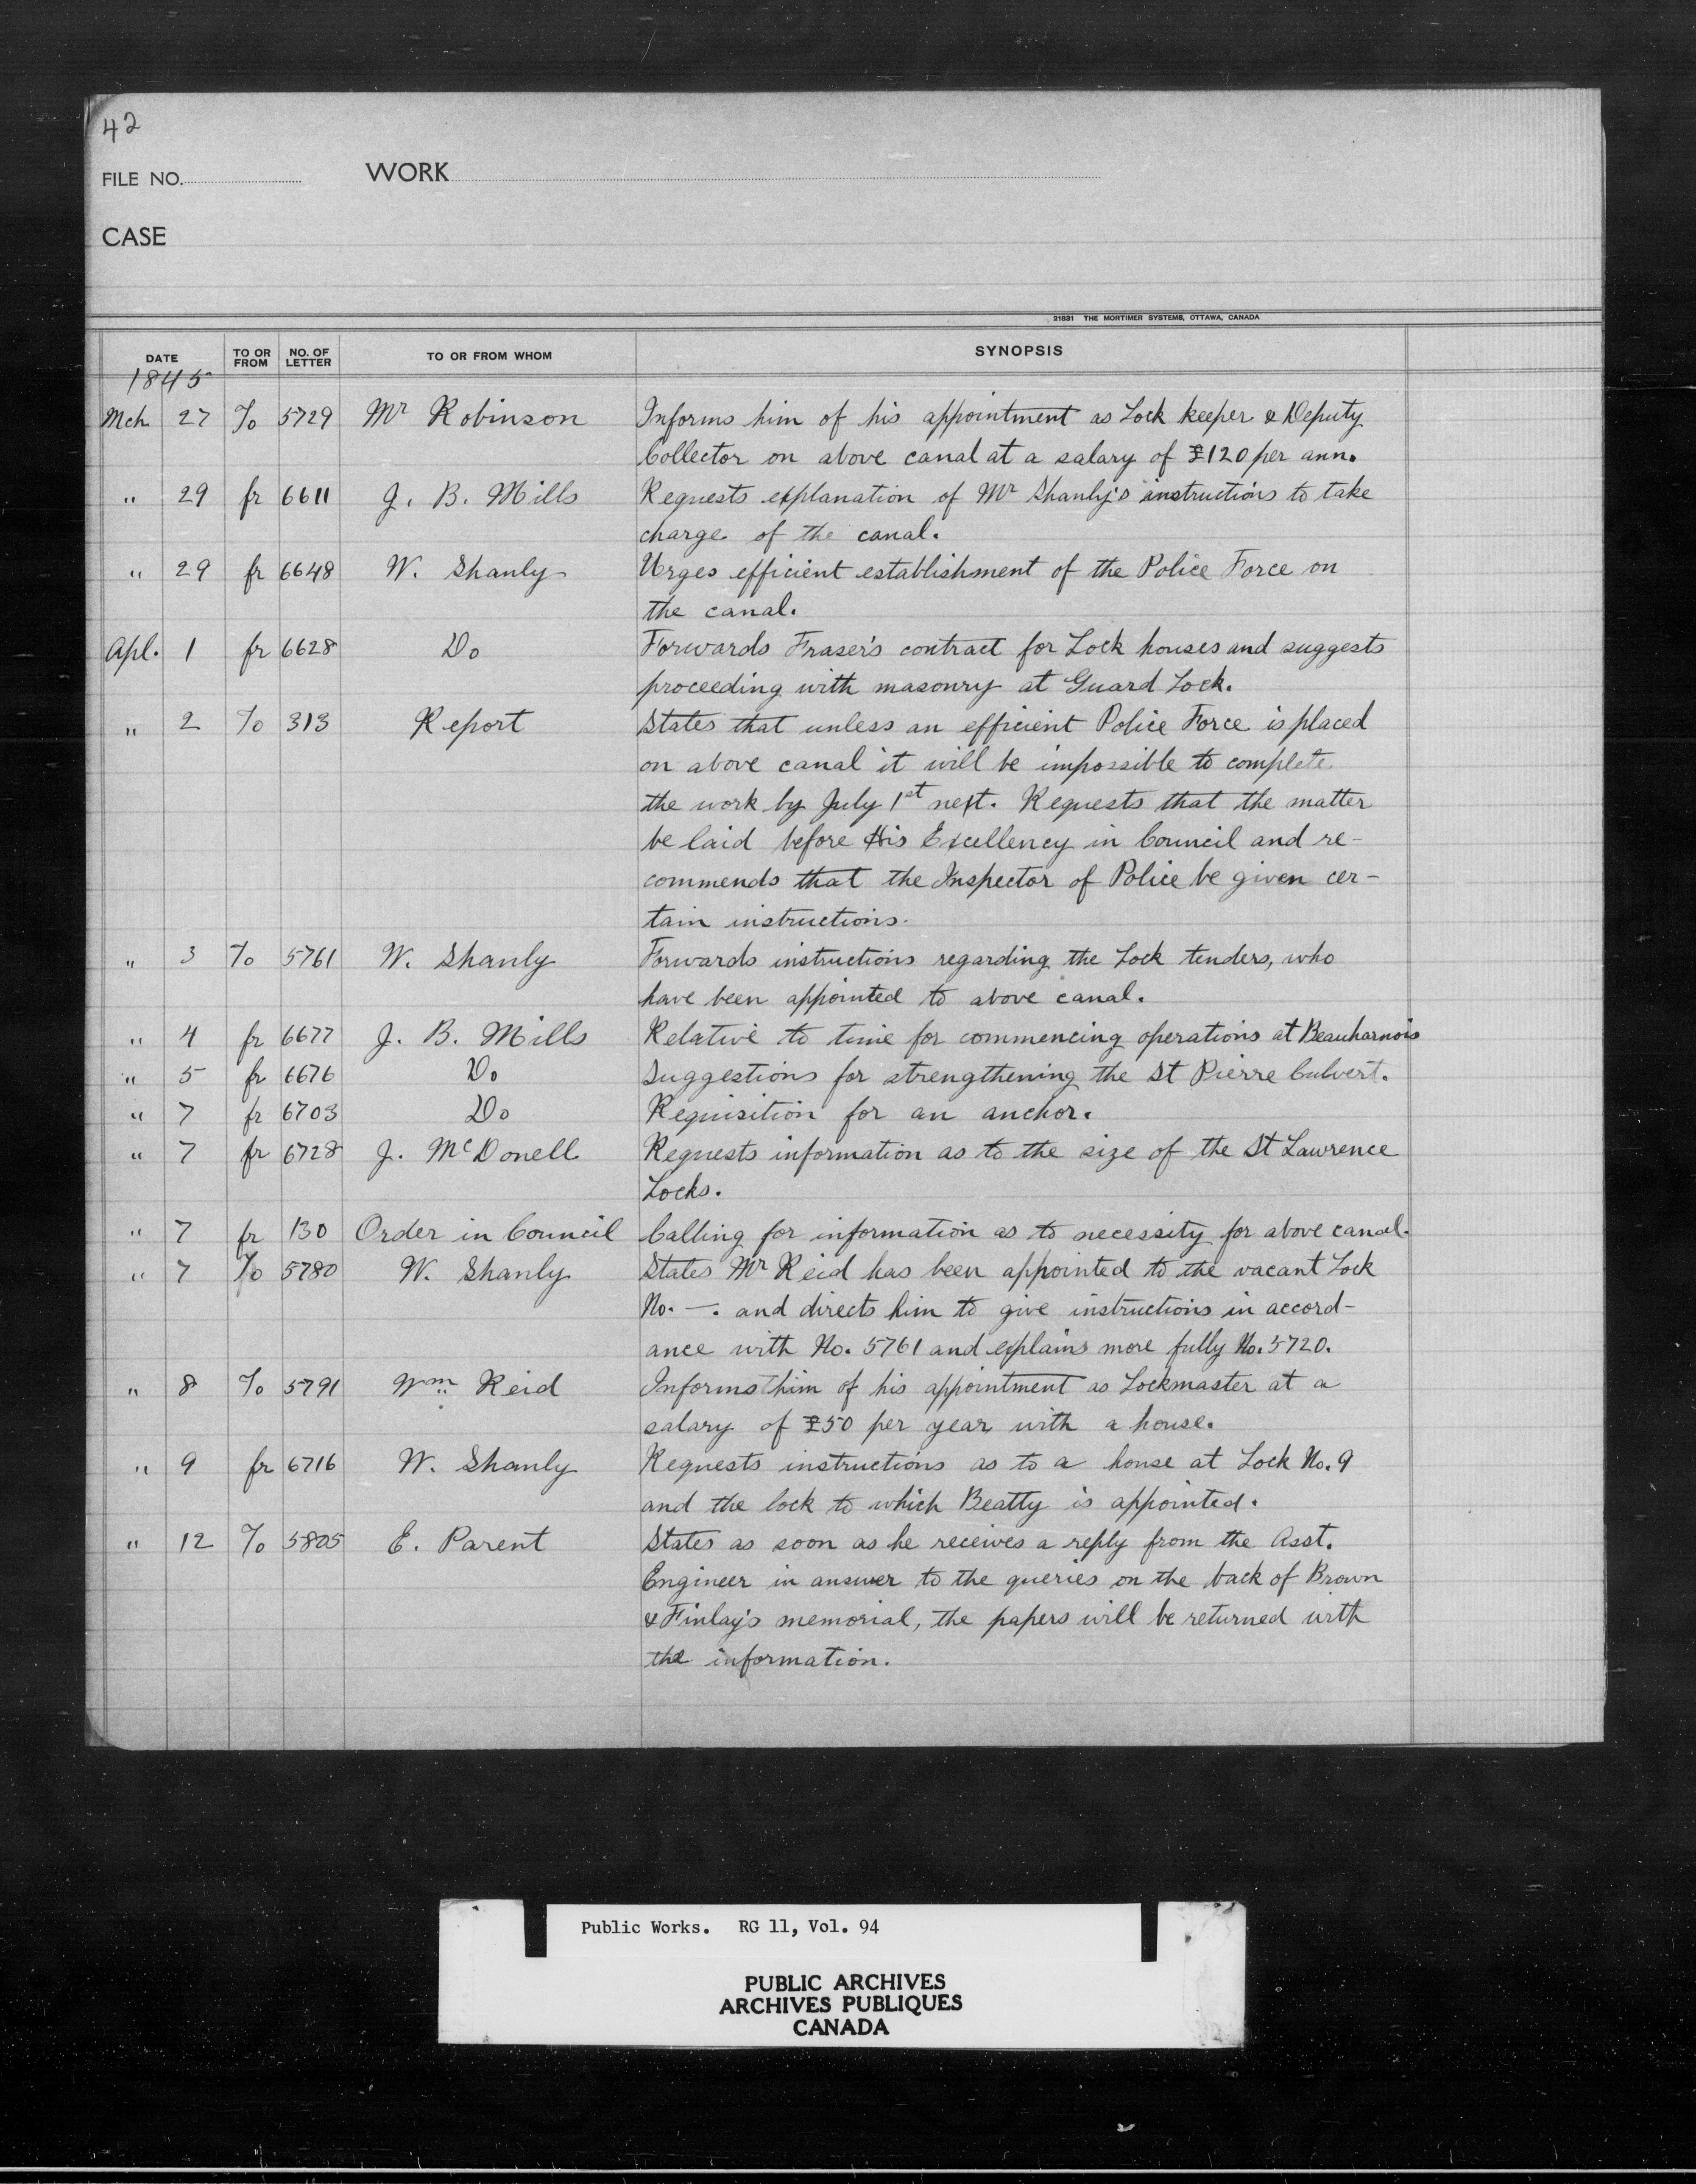 42
FILE NO. WORK
CASE
21831 THE MORTIMER SYSTEMS, OTTAWA, CANADA
DATE TO OR FROM NO. OF LETTER TO OR FROM WHOM SYNOPSIS
1845
Mch 27 To 5729 Mr Robinson Informs him of his appointment as Lock keeper & Deputy
Collector on above canal at a salary of £120 per ann.
" 29 fr 6611 J. B. Mills Requests explanation of Mr Shanly's instructions to take
charge of the canal.
" 29 fr 6648 W. Shanly Urges efficient establishment of the Police Force on
the canal.
Apl. 1 fr 6628 Do Forwards Fraser's contract for Lock houses and suggests
proceeding with masonry at Guard Lock.
" 2 To 313 Report States that unless an efficient Police Force is placed
on above canal it will be impossible to complete
the work by July 1st next. Requests that the matter
be laid before His Excellency in Council and re-
commends that the Inspector of Police be given cer-
tain instructions.
" 3 To 5761 W. Shanly Forwards instructions regarding the Lock tenders, who
have been appointed to above canal.
" 4 fr 6677 J. B. Mills Relative to time for commencing operations at Beauharnois
" 5 fr 6676 Do Suggestions for strengthening the St Pierre Culvert.
" 7 fr 6703 Do Requisition for an anchor.
" 7 fr 6728 J. McDonell Requests information as to the size of the St Lawrence
Locks.
" 7 fr 130 Order in Council Calling for information as to necessity for above canal.
" 7 To 5780 W. Shanly States Mr Reid has been appointed to the vacant Lock
No. —. and directs him to give instructions in accord-
ance with No. 5761 and explains more fully No. 5720.
" 8 To 5791 Wm Reid Informs him of his appointment as Lockmaster at a
salary of £50 per year with a house.
" 9 fr 6716 W. Shanly Requests instructions as to a house at Lock No. 9
and the lock to which Beatty is appointed.
" 12 To 5805 E. Parent States as soon as he receives a reply from the Asst.
Engineer in answer to the queries on the back of Brown
& Finlay's memorial, the papers will be returned with
the information.
Public Works. RG 11, Vol. 94
PUBLIC ARCHIVES
ARCHIVES PUBLIQUES
CANADA